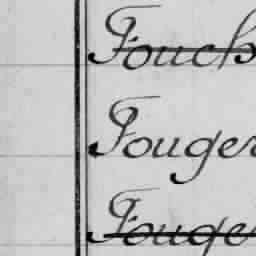 Fouch
Fouger
Fouge